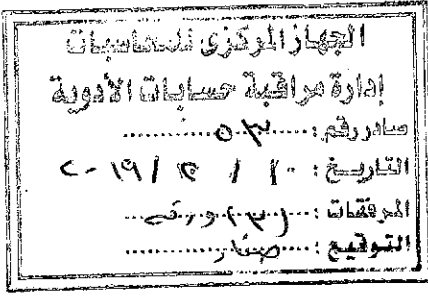 الجهاز المركزى للمحاسبات
إدارة مراقبة حسابات الأدوية
صادر رقم : ٥٣
التاريخ : ١٠ / ٣ / ٢٠١٩
المرفقات : (٣) ورقه
التوقيع :